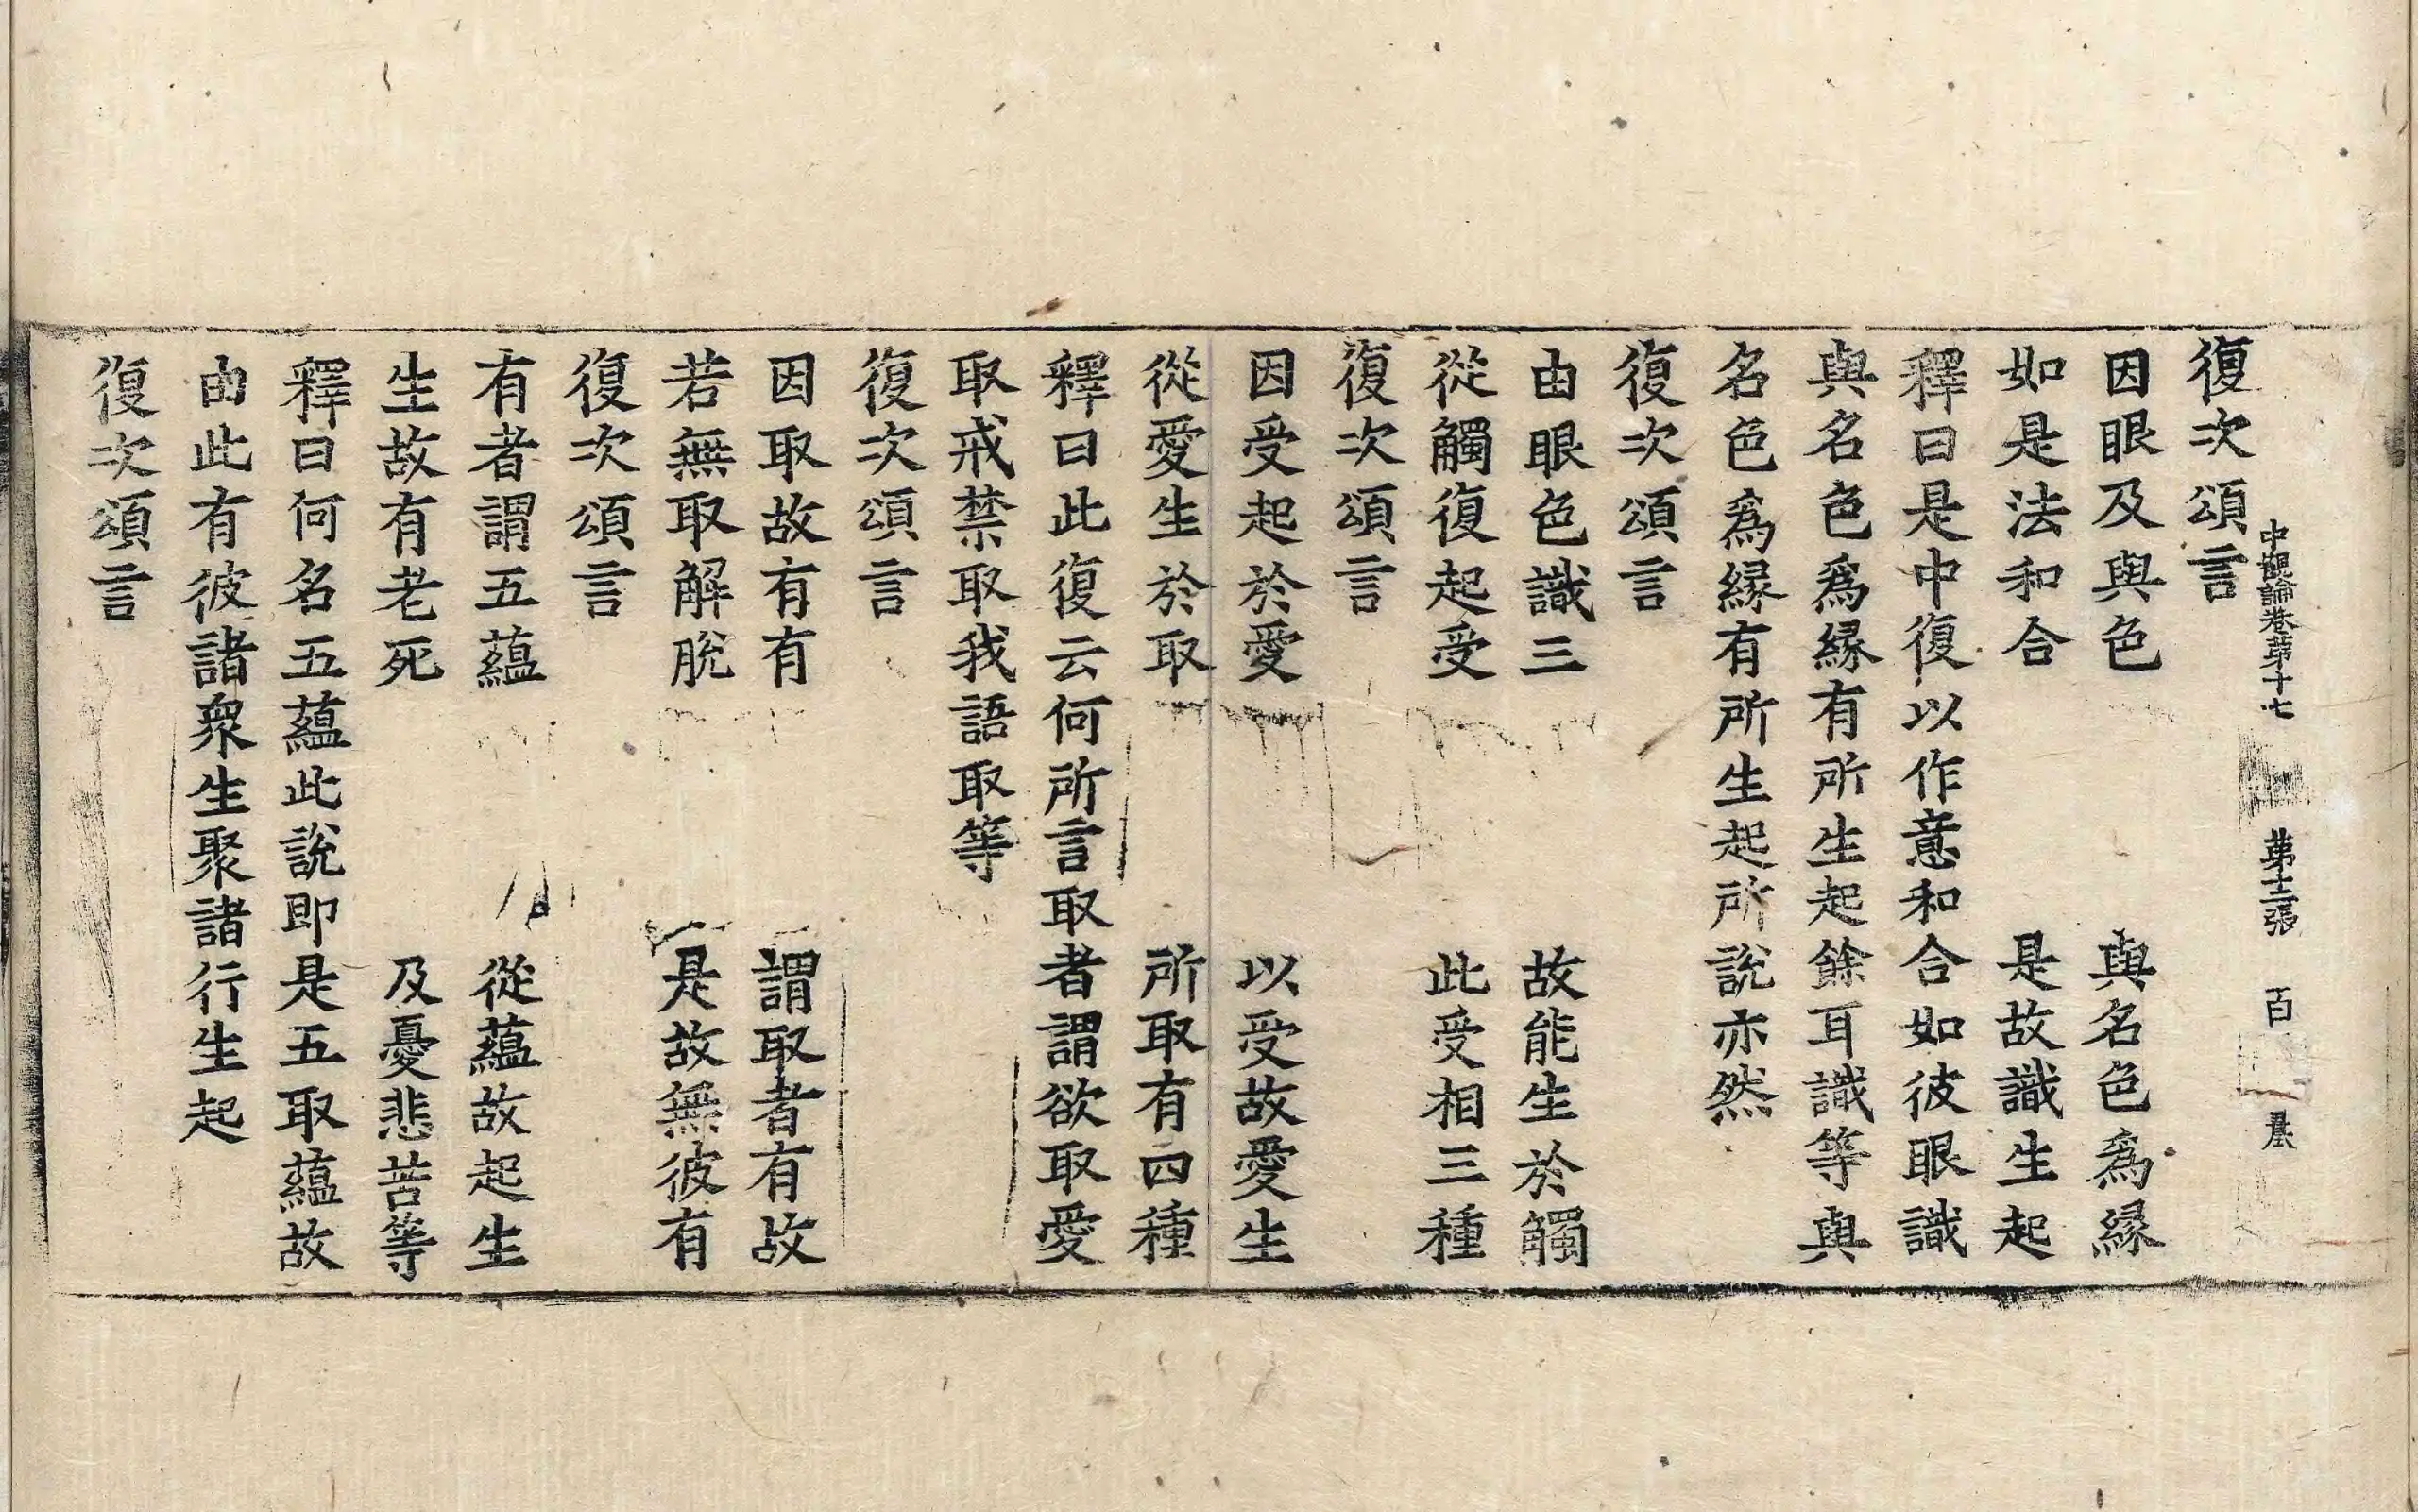 復次頌言
中觀論卷第十七 第十二張 百
因眼及與色 與名色爲縁
如是法和合 是故識生起
釋曰是中復以作意和合如彼眼識
與名色爲縁有所生起餘耳識等與
名色爲縁有所生起所說亦然
復次頌言
由眼色識三 故能生於觸
從觸復起受 此受相三種
復次頌言
因受起於愛 以受故愛生
從愛生於取 所取有四種
釋曰此復云何所言取者謂欲取愛
取戒禁取我語取等
復次頌言
因取故有有 謂取者有故
若無取解脫 是故無彼有
復次頌言
有者謂五蘊 從蘊故起生
生故有老死 及憂悲苦等
釋曰何名五蘊此說即是五取蘊故
由此有彼諸衆生聚諸行生起
復次頌言